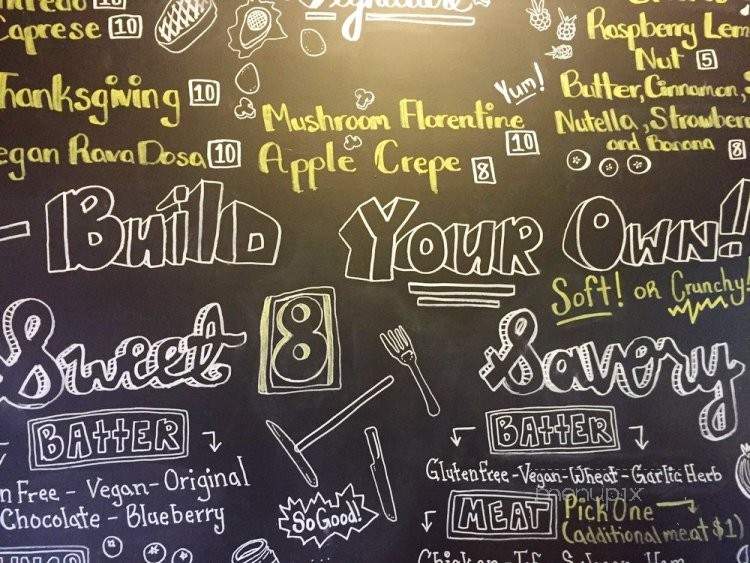 Caprese 10
Signature
Raspberry Lem
Nut 5
Thanksgiving 10
Yum!
Butter, Cinnamon,
Mushroom Florentine 10
Nutella, Strawberr
and Banana 8
egan Rava Dosa 10
Apple Crepe 8
Build Your Own!
Soft! or Crunchy!
Sweet 8
Savory
Batter
n Free - Vegan - Original
Chocolate - Blueberry
So Good!
Batter
Gluten Free - Vegan - Wheat - Garlic Herb
menupix
Meat Pick One
(additional meat $1)
Chicken
Ham